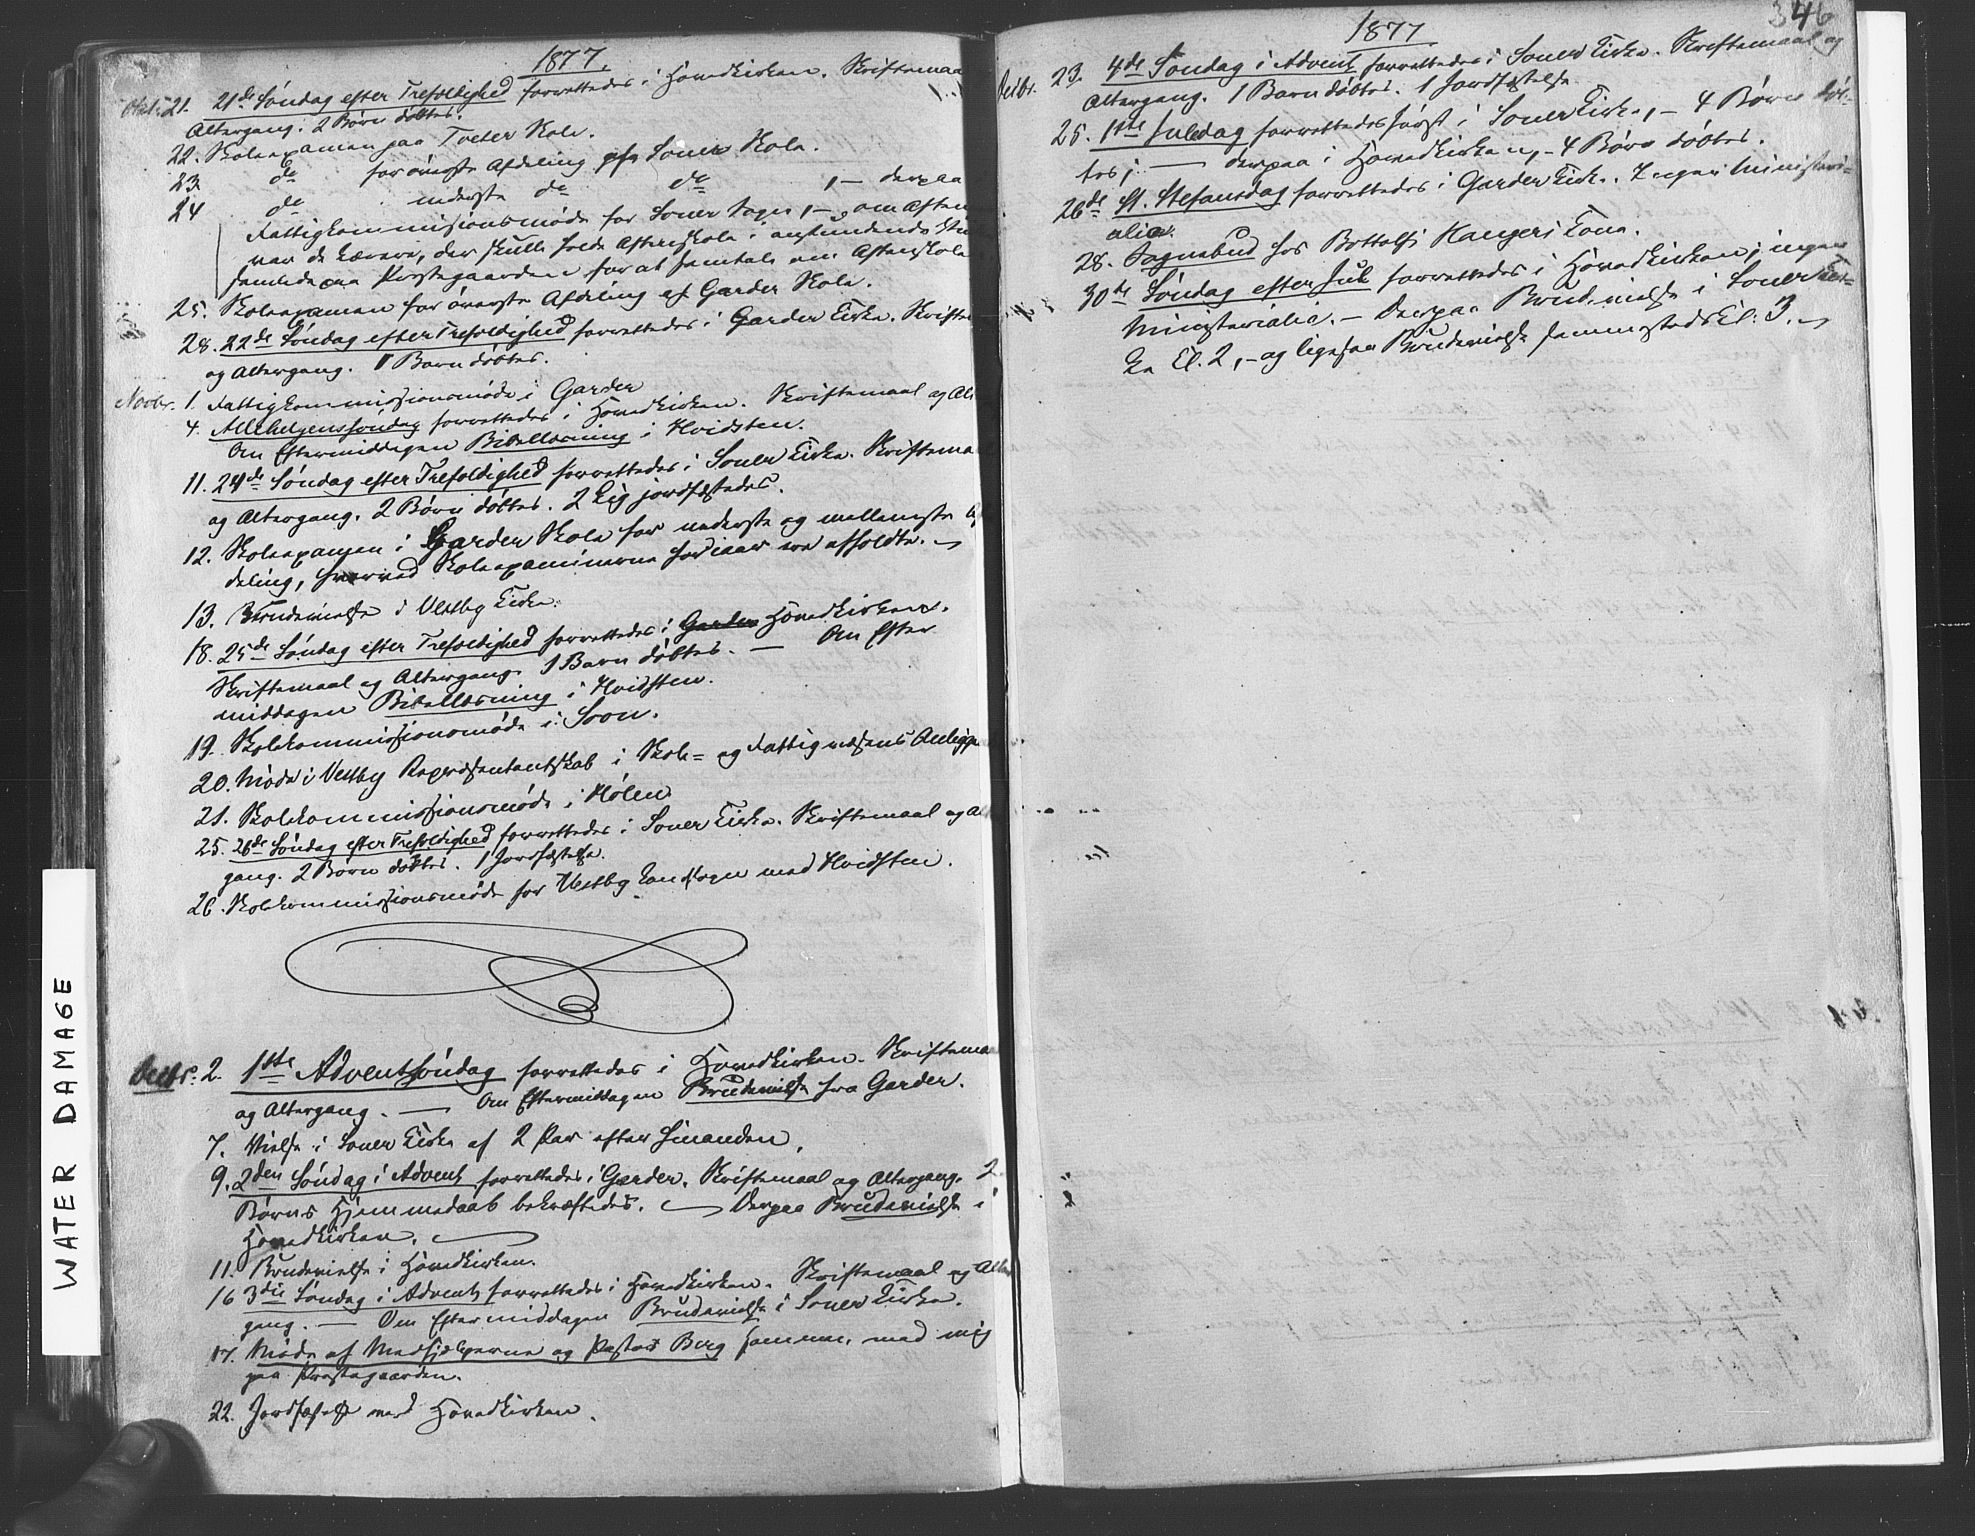 1877.
Oktr. 21. 21de Søndag efter Trefoldighed forrettedes i Hovedkirken. Skriftemaal
Altergang. 2 Børn døbtes.
22. Skoleexamen paa Tveter Skole.
23. do for øverste Afdeling af Soner Skole.
24 do nederste do do, — derpaa
Fattigkommissionsmøde for Soner Sogn, — om Aften
var de Lærere, der skulle holde Aftenskole i anstundende
samlede paa Præstegaarden for at samtale om Aftenskole
25. Skoleexamen for øverste Afdeling af Garder Skole.
28. 22de Søndag efter Trefoldighed forrettedes i Garder Kirke. Skrifte
og Altergang. 1 Barn døbtes.
Novbr. 1. Fattigkommissionsmøde i Garder
4. Allehelgenssøndag forrettedes i Hovedkirken. Skriftemaal og Al
Om Eftermiddagen Bibellæsning i Hvidsten.
11. 24de Søndag efter Trefoldighed forrettedes i Soner Kirke. Skriftema
og Altergang. 2 Børn døbtes. 2 Lig jordfæstedes.
12. Skoleexamen i Garder Skole for nederste og mellemste Af
deling, hvorved Skoleexaminerne for iaar ere afholdte. —
13. Brudevielse i Vestby Kirke.
18. 25de Søndag efter Trefoldighed forrettedes i Garder Hovedkirken.
Skriftemaal og Altergang. 1 Barn døbtes. — Om Efter
middagen Bibellæsning i Hvidsten.
19. Skolekommissionsmøde i Soon.
20. Møde i Vestby Repræsentantskab i Skole= og Fattigvæsens Anligge
21. Skolekommissionsmøde i Hølen
25. 26de Søndag efter Trefoldighed forrettedes i Soner Kirke. Skriftemaal og Al
gang. 2 Børn døbtes. 1 Jordfæstelse.
26. Skolekommissionsmøde for Vestby Landsogn med Hvidsten.
Decbr. 2. 1ste Adventsøndag forrettedes i Hovedkirken. Skriftema
og Altergang. — Om Eftermiddagen Brudevielse fra Garder.
7. Vielse i Soner Kirke af 2 Par efter hinanden.
9. 2den Søndag i Advent forrettedes i Garder. Skriftemaal og Altergang. 2
Børns Hjemmedaab bekræftedes. — Derpaa Brudevielse i
Hovedkirken. —
11. Brudevielse i Hovedkirken.
16 3die Søndag i Advent forrettedes i Hovedkirken. Skriftemaal og Alter
gang. — Om Eftermiddagen Brudevielse i Soner Kirke.
17. Møde af Medhjælperne og Pastor Borg sammen med mig
paa Præstegaarden.
22. Jordfæstelse ved Hovedkirken.
346
1877
Decbr. 23. 4de Søndag i Advent forrettedes i Soner Kirke. Skriftemaal og
Altergang. 1 Barn døbtes. 1 Jordfæstelse.
25. 1ste Juledag forrettedes først i Soner Kirke, — 4 Børn døb=
tes; — derpaa i Hovedkirken, — 4 Børn døbtes.
26de St. Stefansdag forrettedes i Garder Kirke. Ingen Ministeri=
alia.
28. Sognebud hos Bottolfs Kone.
30te Søndag efter Jul forrettedes i Hovedkirken; ingen
Ministerialia. — Derpaa Brudevielse i Soner Kir=
ke Kl. 2, — og ligesaa Brudevielse sammesteds Kl. 3. —
WATER DAMAGE